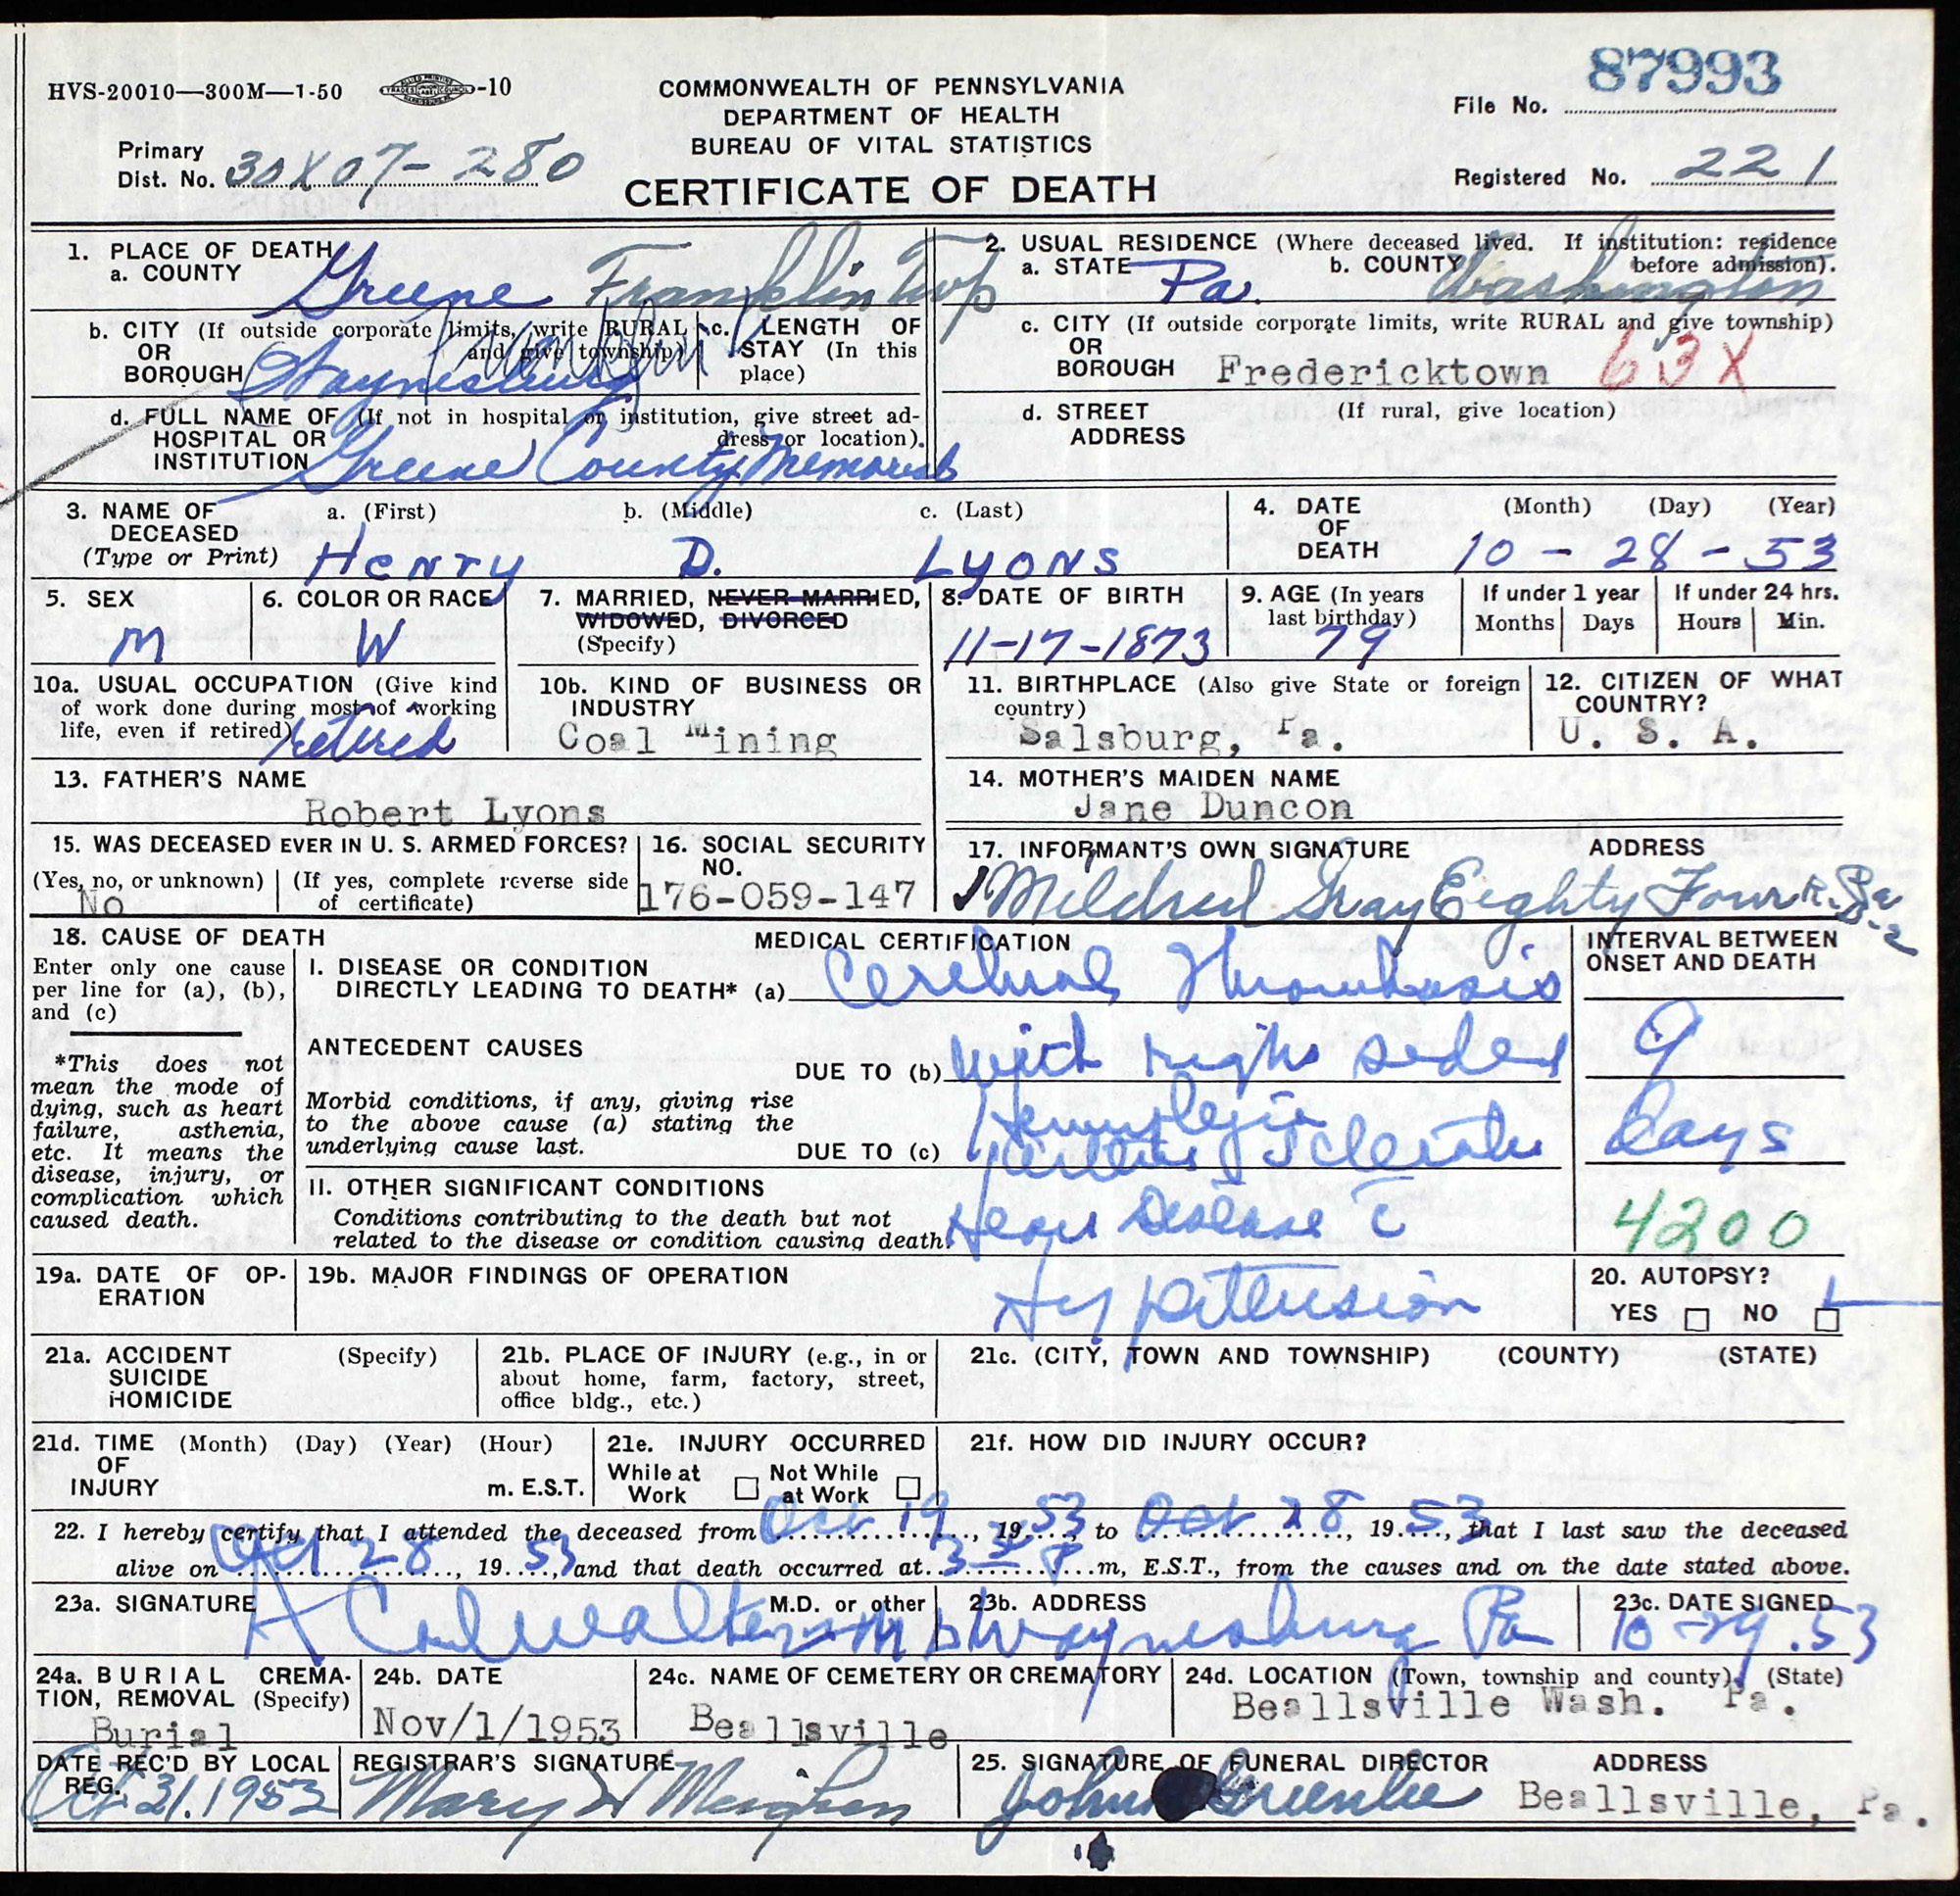 HVS-20010—300M—1-50 -10
COMMONWEALTH OF PENNSYLVANIA
DEPARTMENT OF HEALTH
BUREAU OF VITAL STATISTICS
CERTIFICATE OF DEATH
87993
File No.
Primary
Dist. No. 30X07-280
Registered No. 221
1. PLACE OF DEATH
a. COUNTY Greene Franklin Twp
2. USUAL RESIDENCE (Where deceased lived. If institution: residence before admission).
a. STATE Pa. b. COUNTY Washington
b. CITY (If outside corporate limits, write RURAL and give township)
OR
BOROUGH Waynesburg
c. LENGTH OF STAY (In this place)
c. CITY (If outside corporate limits, write RURAL and give township)
OR
BOROUGH Fredericktown 63X
d. FULL NAME OF (If not in hospital or institution, give street address or location).
HOSPITAL OR
INSTITUTION Greene County Memorial
d. STREET (If rural, give location)
ADDRESS
3. NAME OF DECEASED (Type or Print)
a. (First) b. (Middle) c. (Last)
Henry D. Lyons
4. DATE OF DEATH (Month) (Day) (Year)
10 - 28 - 53
5. SEX
M
6. COLOR OR RACE
W
7. MARRIED, NEVER MARRIED, WIDOWED, DIVORCED (Specify)
8. DATE OF BIRTH
11-17-1873
9. AGE (In years last birthday)
79
If under 1 year
Months Days
If under 24 hrs.
Hours Min.
10a. USUAL OCCUPATION (Give kind of work done during most of working life, even if retired)
retired
10b. KIND OF BUSINESS OR INDUSTRY
Coal Mining
11. BIRTHPLACE (Also give State or foreign country)
Salsburg, Pa.
12. CITIZEN OF WHAT COUNTRY?
U. S. A.
13. FATHER'S NAME
Robert Lyons
14. MOTHER'S MAIDEN NAME
Jane Duncon
15. WAS DECEASED EVER IN U. S. ARMED FORCES?
(Yes, no, or unknown) (If yes, complete reverse side of certificate)
No
16. SOCIAL SECURITY NO.
176-059-147
17. INFORMANT'S OWN SIGNATURE ADDRESS
Mildred Gray Eighty Four R.D-2 Pa
18. CAUSE OF DEATH
Enter only one cause per line for (a), (b), and (c)
*This does not mean the mode of dying, such as heart failure, asthenia, etc. It means the disease, injury, or complication which caused death.
MEDICAL CERTIFICATION
I. DISEASE OR CONDITION
DIRECTLY LEADING TO DEATH* (a) Cerebral Thrombosis
ANTECEDENT CAUSES
DUE TO (b) with right sided
Hemiplegia
Morbid conditions, if any, giving rise to the above cause (a) stating the underlying cause last.
DUE TO (c) Arterio Sclerotic
II. OTHER SIGNIFICANT CONDITIONS
Conditions contributing to the death but not related to the disease or condition causing death.
Heart Disease c̄
Hypertension
INTERVAL BETWEEN ONSET AND DEATH
9
Days
4200
19a. DATE OF OPERATION
19b. MAJOR FINDINGS OF OPERATION
20. AUTOPSY?
YES NO
21a. ACCIDENT (Specify)
SUICIDE
HOMICIDE
21b. PLACE OF INJURY (e.g., in or about home, farm, factory, street, office bldg., etc.)
21c. (CITY, TOWN AND TOWNSHIP) (COUNTY) (STATE)
21d. TIME (Month) (Day) (Year) (Hour)
OF
INJURY m. E.S.T.
21e. INJURY OCCURRED
While at Work Not While at Work
21f. HOW DID INJURY OCCUR?
22. I hereby certify that I attended the deceased from Oct 19, 1953 to Oct 28, 1953, that I last saw the deceased
alive on Oct 28, 1953, and that death occurred at P m, E.S.T., from the causes and on the date stated above.
23a. SIGNATURE M.D. or other
23b. ADDRESS
Waynesburg Pa
23c. DATE SIGNED
10-29.53
24a. BURIAL CREMATION, REMOVAL (Specify)
Burial
24b. DATE
Nov/1/1953
24c. NAME OF CEMETERY OR CREMATORY
Beallsville
24d. LOCATION (Town, township and county) (State)
Beallsville Wash. Pa.
DATE REC'D BY LOCAL REG.
Oct 31. 1953
REGISTRAR'S SIGNATURE
Mary H Meighen
25. SIGNATURE OF FUNERAL DIRECTOR ADDRESS
John Greenlee Beallsville, Pa.